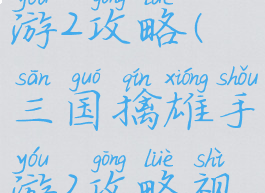 yóu gōng lüè
游2攻略(
sān guó qín xióng shǒu
三国擒雄手
yóu gōng lüè shì
游2攻略视